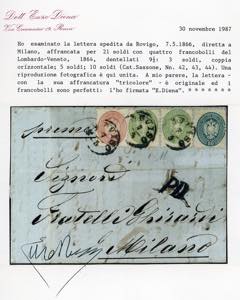 Dott. Enzo Diena
30 novembre 1987
Ho esaminato la lettera spedita da Rovigo, 7.5.1866, diretta a
Milano, affrancata per 21 soldi con quattro francobolli del
Lombardo-Veneto, 1864, dentellati 9½: 3 soldi, coppia
orizzontale; 5 soldi; 10 soldi (Cat.Sassone, No. 42, 43, 44). Una
riproduzione fotografica è qui unita. A mio parere, la lettera -
con la sua affrancatura "tricolore" - è originale ed i
francobolli sono perfetti: l'ho firmata "E.Diena". * * * * * * *
Signori
Fratelli
Milano